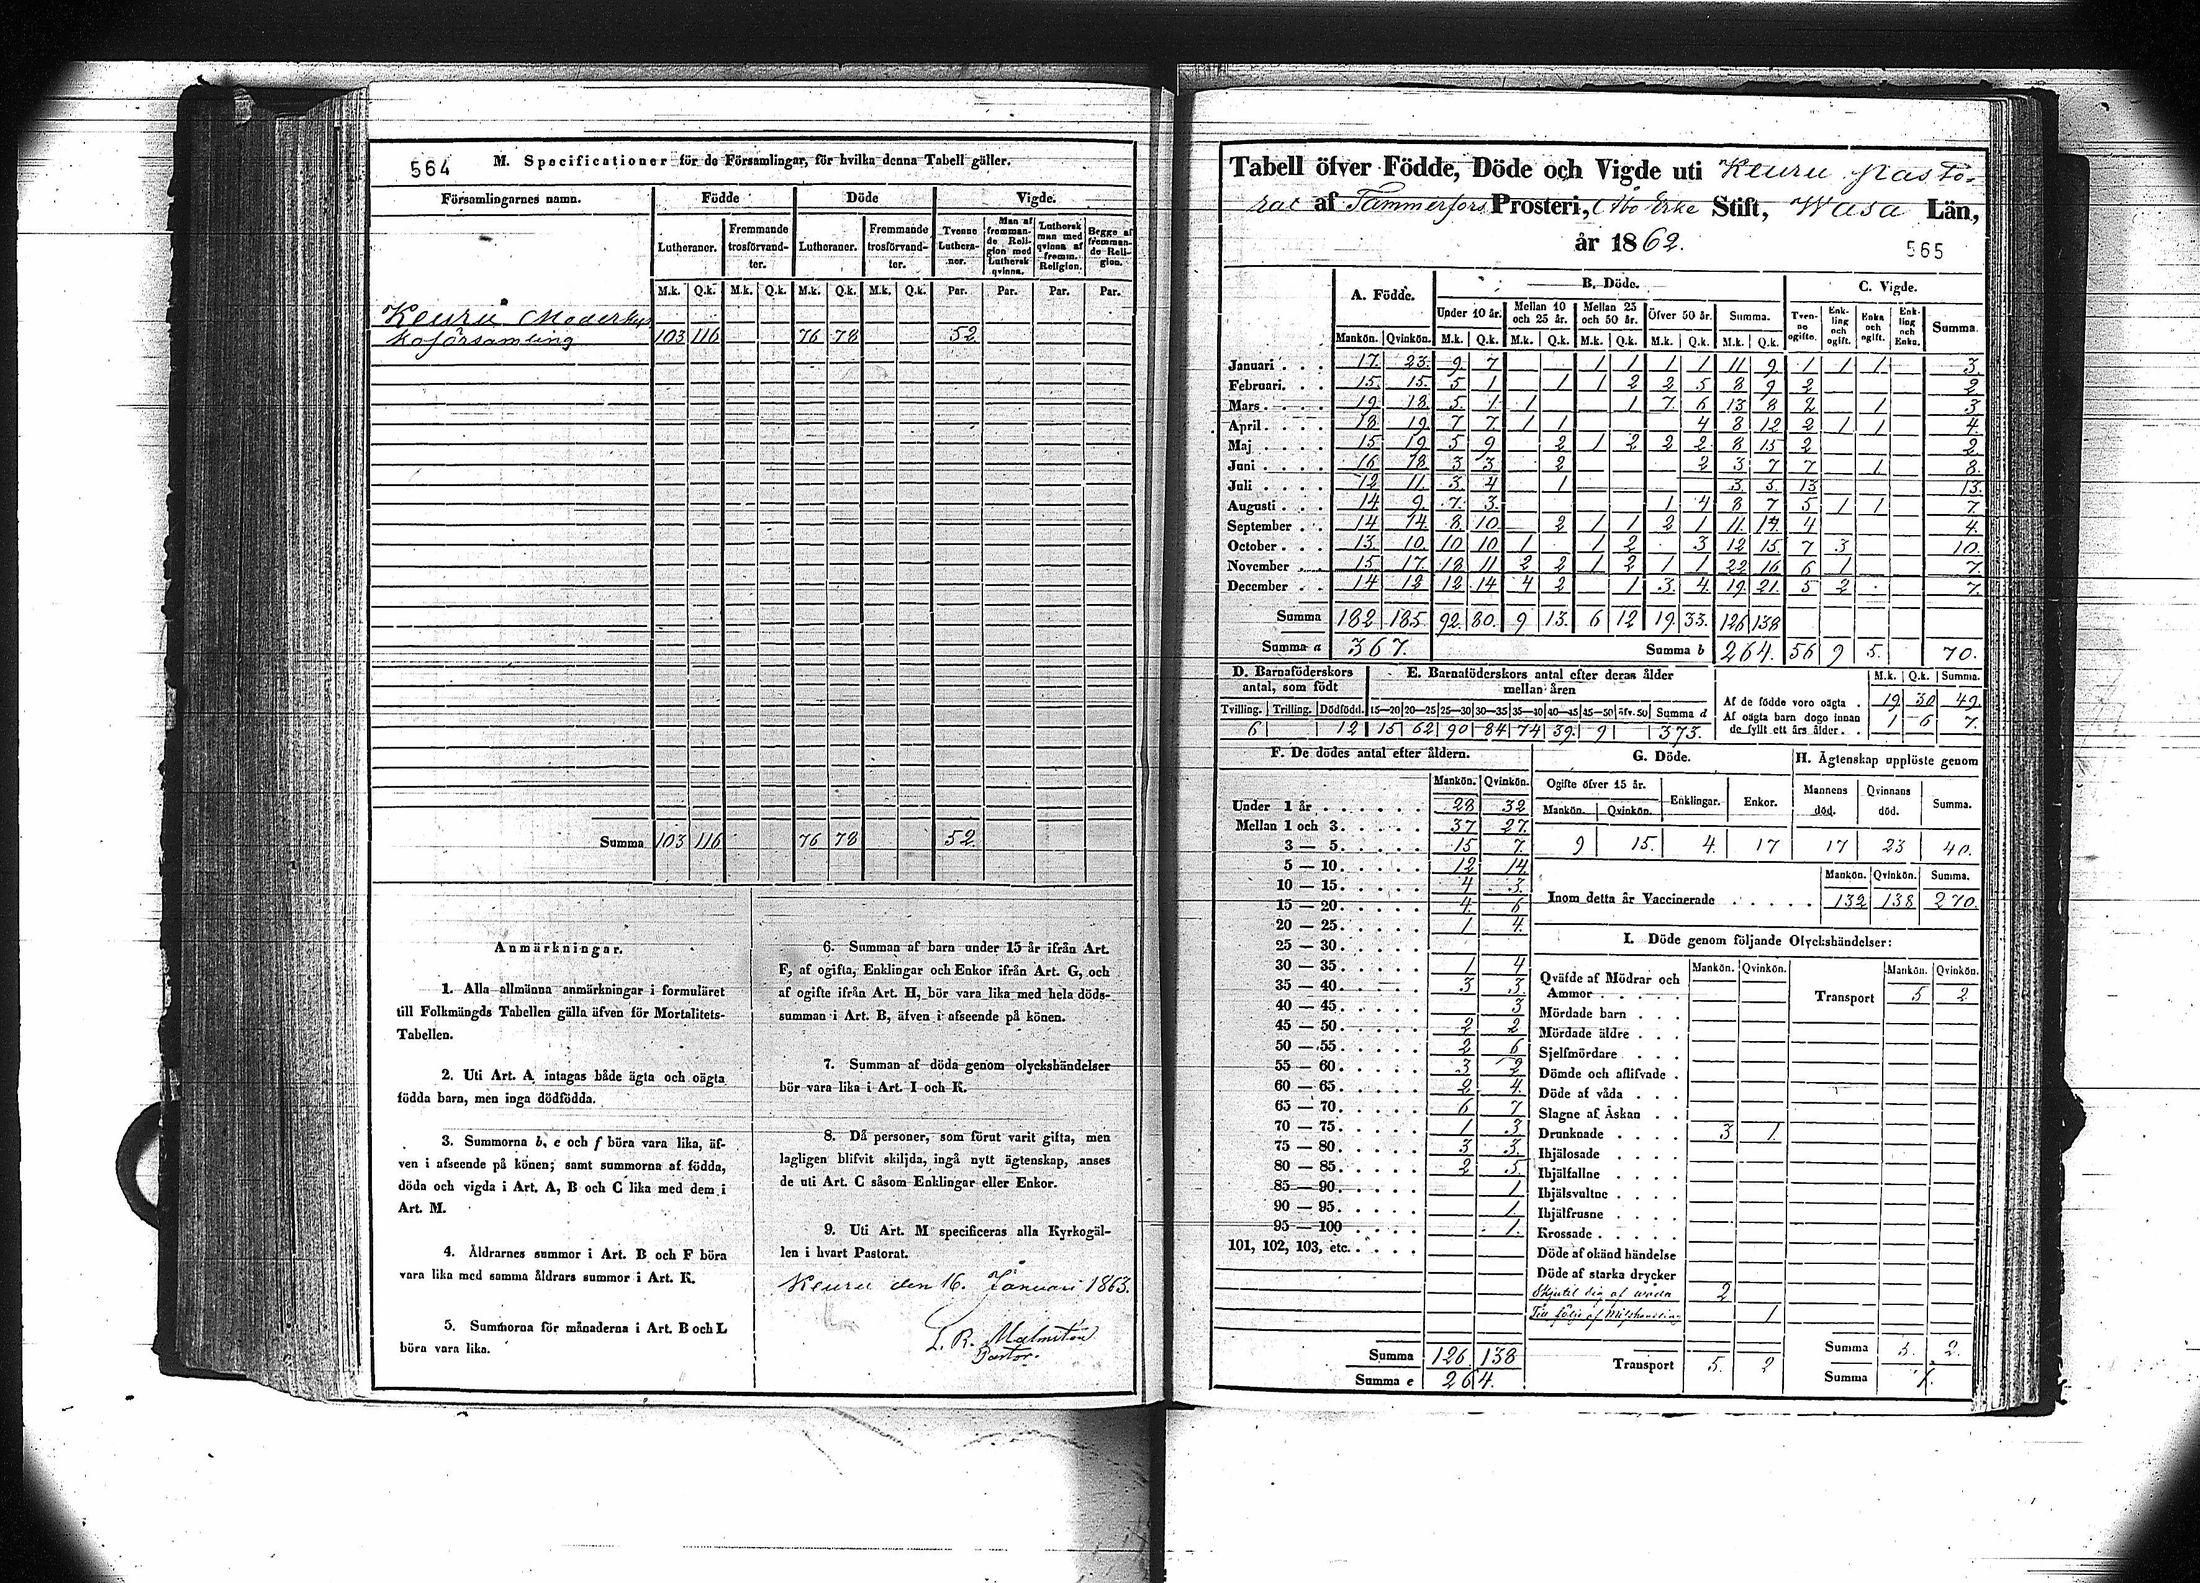 564
M. Specificationer för de Församlingar, för hvilka denna Tabell gäller.
Församlingarnes namn. Födde Döde Vigde.
Lutheraner. Fremmande trosförvandter. Lutheraner. Fremmande trosförvandter. Tvenne Lutheraner. Man af fremmande Religion med Luthersk qvinna. Luthersk man med qvinna af fremm. Religion. Begge af fremmande Religion.
M.k. Q.k. M.k. Q.k. M.k. Q.k. M.k. Q.k. Par. Par. Par. Par.
Keuru Moderkyr
koförsamling 103 116 76 78 52
Summa 103 116 76 78 52.
Anmärkningar.
1. Alla allmänna anmärkningar i formuläret
till Folkmängds Tabellen gälla äfven för Mortalitets-
Tabellen.
2. Uti Art. A intagas både ägta och oägta
födda barn, men inga dödfödda.
3. Summorna b, e och f böra vara lika, äf-
ven i afseende på könen; samt summorna af födda,
döda och vigda i Art. A, B och C lika med dem i
Art. M.
4. Åldrarnes summor i Art. B och F böra
vara lika med samma åldrars summor i Art. K.
5. Summorna för månaderna i Art. B och L
böra vara lika.
6. Summan af barn under 15 år ifrån Art.
F, af ogifta, Enklingar och Enkor ifrån Art. G, och
af ogifte ifrån Art. H, bör vara lika med hela döds-
summan i Art. B, äfven i afseende på könen.
7. Summan af döda genom olyckshändelser
bör vara lika i Art. I och K.
8. Då personer, som förut varit gifta, men
lagligen blifvit skiljda, ingå nytt ägtenskap, anses
de uti Art. C såsom Enklingar eller Enkor.
9. Uti Art. M specificeras alla Kyrkogäl-
len i hvart Pastorat.
Keuru den 16. Januari 1863.
L. R. Malmstén
Pastor.
Tabell öfver Födde, Döde och Vigde uti Keuru pasto-
rat af Tammerfors Prosteri, Åbo Erke Stift, Wasa Län,
år 1862.
565
A. Födde. B. Döde. C. Vigde.
Under 10 år. Mellan 10 och 25 år. Mellan 25 och 50 år. Öfver 50 år. Summa. Tvenne ogifte. Enkling och ogift. Enka och ogift. Enkling och Enka. Summa.
Mankön. Qvinkön. M.k. Q.k. M.k. Q.k. M.k. Q.k. M.k. Q.k. M.k. Q.k.
Januari . . . 17. 23. 9 7 1 1 1 1 11 9 1 1 1 3.
Februari. . . 15. 15. 5 1 1 1 2 2 5 8 9 2 2
Mars . . . . 19 18 5 1 1 1 7. 6 13 8 2 1 3
April . . . . 18 19 7 7 1 1 4 8 12 2 1 1 4.
Maj . . . . 15 19 5 9 2 1 2 2 2 8 15 2 2
Juni . . . . 16 18 3 3 2 2 3 7 7 1 8.
Juli . . . . 12 11 3 4 1 3 5. 13 13.
Augusti . . . 14 9 7 3. 1 4 8 7 5 1 1 7
September . . 14 14. 8 10 2 1 1 2 1 11 14. 4 4.
October . . . 13. 10. 10 10 1 1 2 3 12 15. 7 3 10.
November . . 15 17. 18 11 2 2 1 2 1 1 22 16 6 1 7.
December . . 14 12 12 14 4 2 1 3 4. 19. 21. 5 2 7.
Summa 182 185 92. 80. 9 13. 6 12 19. 33. 126 138
Summa a 367. Summa b 264. 56 9 5. 70.
D. Barnaföderskors antal, som födt
Tvilling. Trilling. Dödfödd.
6 12
E. Barnaföderskors antal efter deras ålder mellan åren
15—20 20—25 25—30 30—35 35—40 40—45 45—50 öfv. 50 Summa d
15 62 90 84 74 39. 9 373.
M.k. Q.k. Summa.
Af de födde voro oägta . 19 30 49.
Af oägta barn dogo innan
de fyllt ett års ålder . . 1 6 7.
F. De dödes antal efter åldern.
Mankön. Qvinkön.
Under 1 år . . . . . . 28 32
Mellan 1 och 3. . . . . 37 27.
3 — 5. . . . . 15 7.
5 — 10. . . . . 12 14
10 — 15. . . . . 4 3
15 — 20. . . . . 4. 6
20 — 25. . . . . 1 4.
25 — 30. . . . .
30 — 35. . . . . 1 4
35 — 40. . . . . 3 3.
40 — 45. . . . . 3
45 — 50. . . . . 2 2
50 — 55. . . . . 2 6
55 — 60. . . . . 3 2
60 — 65. . . . . 2 4.
65 — 70. . . . . 6 7
70 — 75. . . . . 1 3
75 — 80. . . . . 3 3.
80 — 85. . . . . 2 5
85 — 90. . . . . 1
90 — 95. . . . . 1.
95 — 100 . . . . 1.
101, 102, 103, etc. . . . .
Summa 126 138
Summa e 264.
G. Döde.
Ogifte öfver 15 år. Enklingar. Enkor.
Mankön. Qvinkön.
9 15. 4. 17
H. Ägtenskap upplöste genom
Mannens död. Qvinnans död. Summa.
17 23 40.
Mankön. Qvinkön. Summa.
Inom detta år Vaccinerade . . . . . 132 138 270.
I. Döde genom följande Olyckshändelser:
Mankön. Qvinkön. Mankön. Qvinkön.
Qväfde af Mödrar och
Ammor . . . . .
Mördade barn . . .
Mördade äldre . . .
Sjelfmördare . . .
Dömde och aflifvade .
Döde af våda . . .
Slagne af Åskan . .
Drunknade . . . . 3 1.
Ihjälosade . . . .
Ihjälfallne . . . .
Ihjälsvultne . . . .
Ihjälfrusne . . . .
Krossade . . . . .
Döde af okänd händelse
Döde af starka drycker
Skjutit sig af våda 2
Till följe af Misshandling 1
Transport 5. 2
Transport 5 2
Summa 5. 2.
Summa 7.